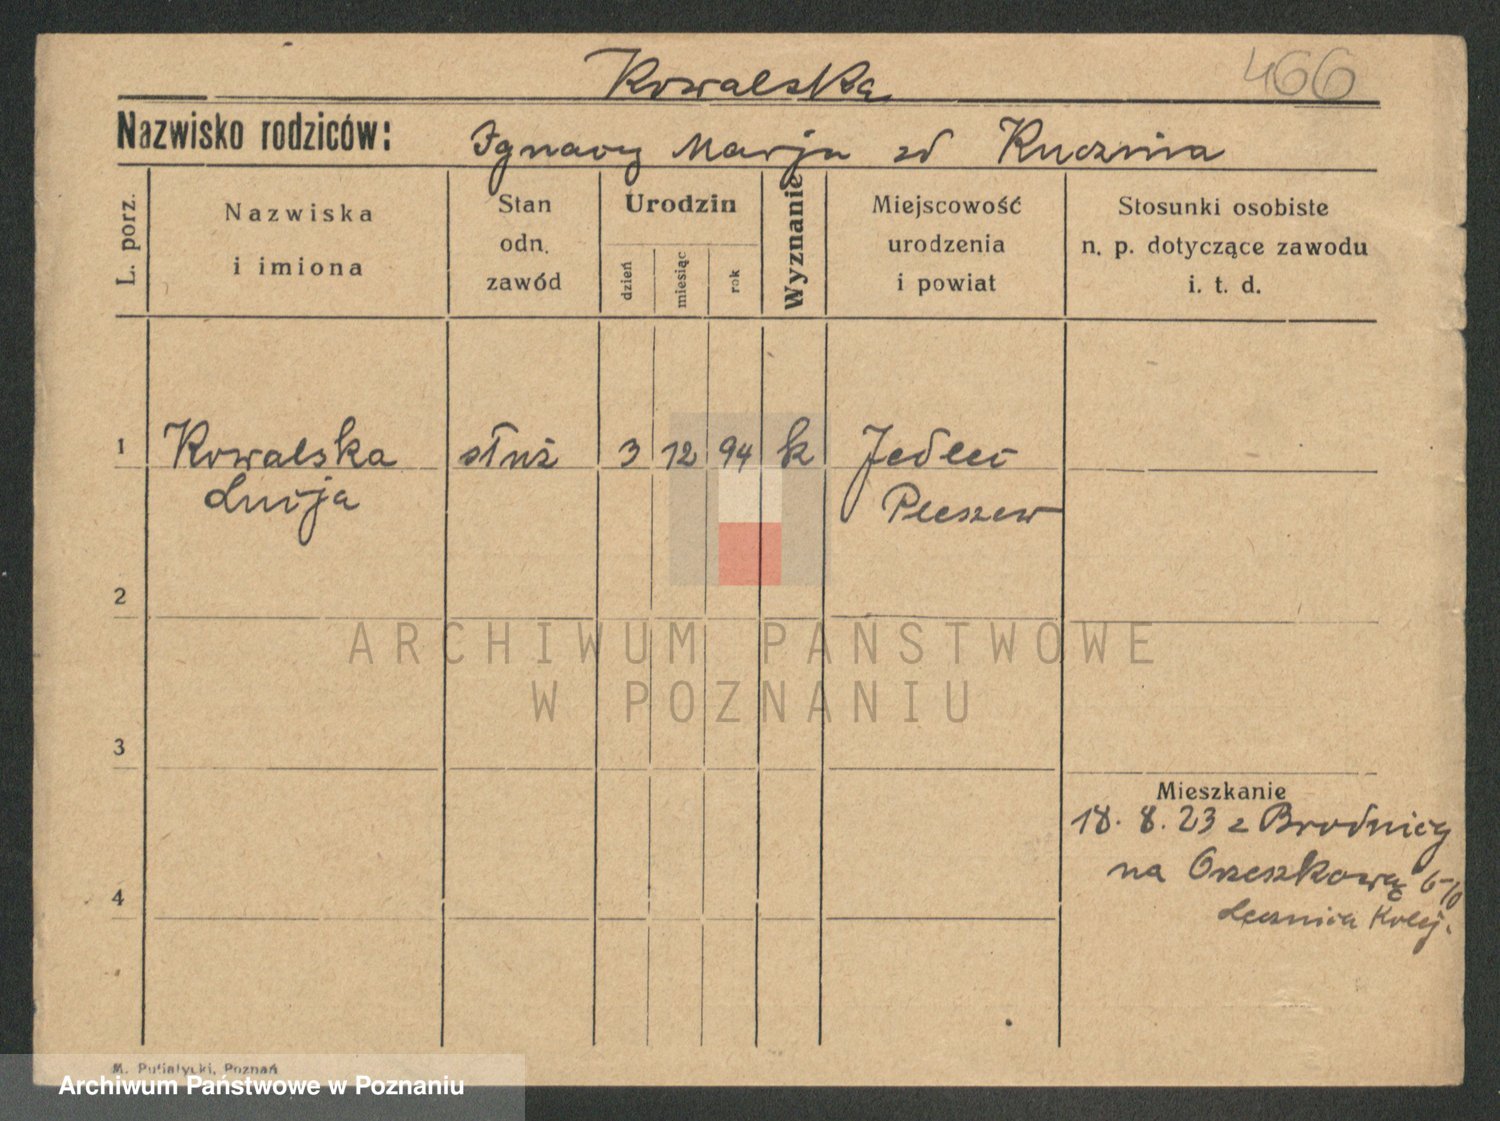 Kowalska
466
Nazwisko rodziców: Ignacy Marja zd Kucznia
L. porz.
Nazwiska i imiona
Stan odn. zawód
Urodzin
dzień miesiąc rok
Wyznanie
Miejscowość urodzenia i powiat
Stosunki osobiste n. p. dotyczące zawodu i. t. d.
1 Kowalska służ 3 12 94 k Jedlec
Lucja Pleszew
2
ARCHIWUM PAŃSTWOWE
W POZNANIU
3
Mieszkanie
18. 8. 23 z Brodnicy
4
na Orzeszkową 6-10
Lecznica Kolej.
M. Putiatycki, Poznań
Archiwum Państwowe w Poznaniu